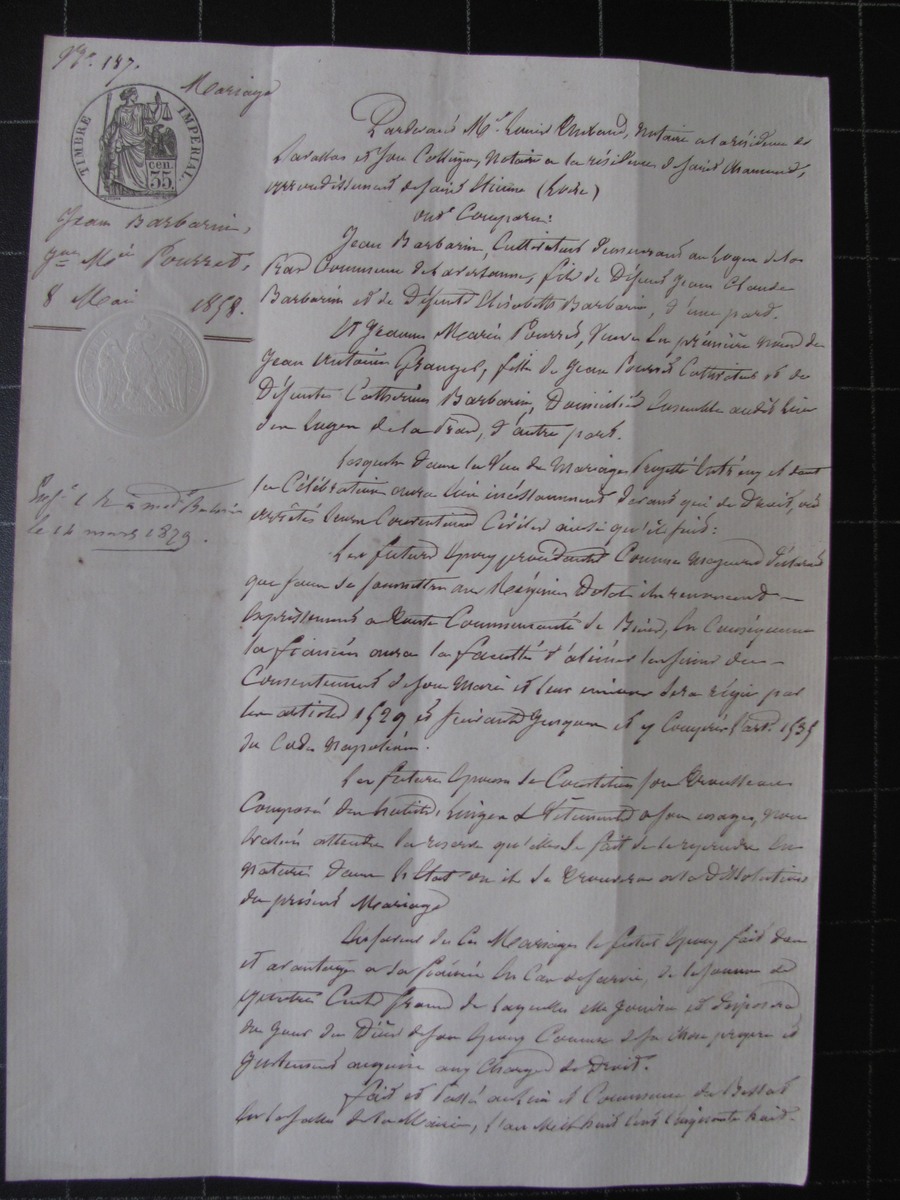 N° 187.
Mariage
TIMBRE IMPERIAL.
cen. 35.
Jean Barbarin,
Jne Mie Pourret,
8 Mai 1858.
le 14 mars 1879.
Pardevant Me Louis notaire à la résidence de
et son Collègue Notaire a la résidence de Saint Chamond,
arrondissement de Saint Etienne (Loire)
ont Comparu:
Jean Barbarin, Cultivateur demeurant au de la
Commune de fils de Défunt Jean Claude
Barbarin et de Défunte Elisabeth Barbarin, d'une part.
Et Jeanne Marie Pourret, Veuve en première noces de
Jean Antoine Grangé, fille de Jean Pourret Cultivateur et de
Défunte Catherine Barbarin, Domiciliés Ensemble audit lieu
de la d'autre part.
Lesquels dans la Vue du Mariage Projetté Entr'eux et dont
la Célébration aura lieu incessamment devant qui de Droit, ont
arrêtés leurs Conventions Civiles ainsi qu'il suit:
Les futurs Epoux Comme
que faire se soumettre au Régime Dotal ils renoncent
Expressément a toute Communauté de Biens, En Conséquence
la fiancée aura la faculté d'aliéner
Consentement de son Mari et leur union sera régie par
les articles 1529 et suivants jusques et y Compris l'art. 1535
du Code Napoléon.
La future Epouse se Constitue son trousseau
Composé Linges & Vêtements a son usage,
la reserve qu'elle se fait de le reprendre En
nature dans l'Etat ou il se trouvera a la Dissolution
du présent Mariage
En faveur de Ce Mariage le futur Epoux fait don
et avantage a sa fiancée En Cas de survie, de la somme de
quatre Cents francs de laquelle Elle Jouira et Disposera
du jour du Décès de son Epoux Comme de sa Chose propre et
justement acquise aux Charges de Droit.
Fait et Passé au lieu et Commune du Bessat
En la salle de la Mairie, l'an Mil huit Cent Cinquante huit.